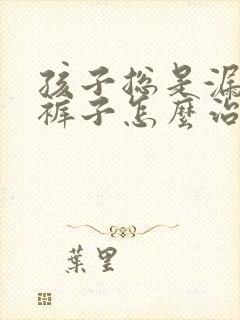 孩子總是漏
褲子怎麼治
葉里